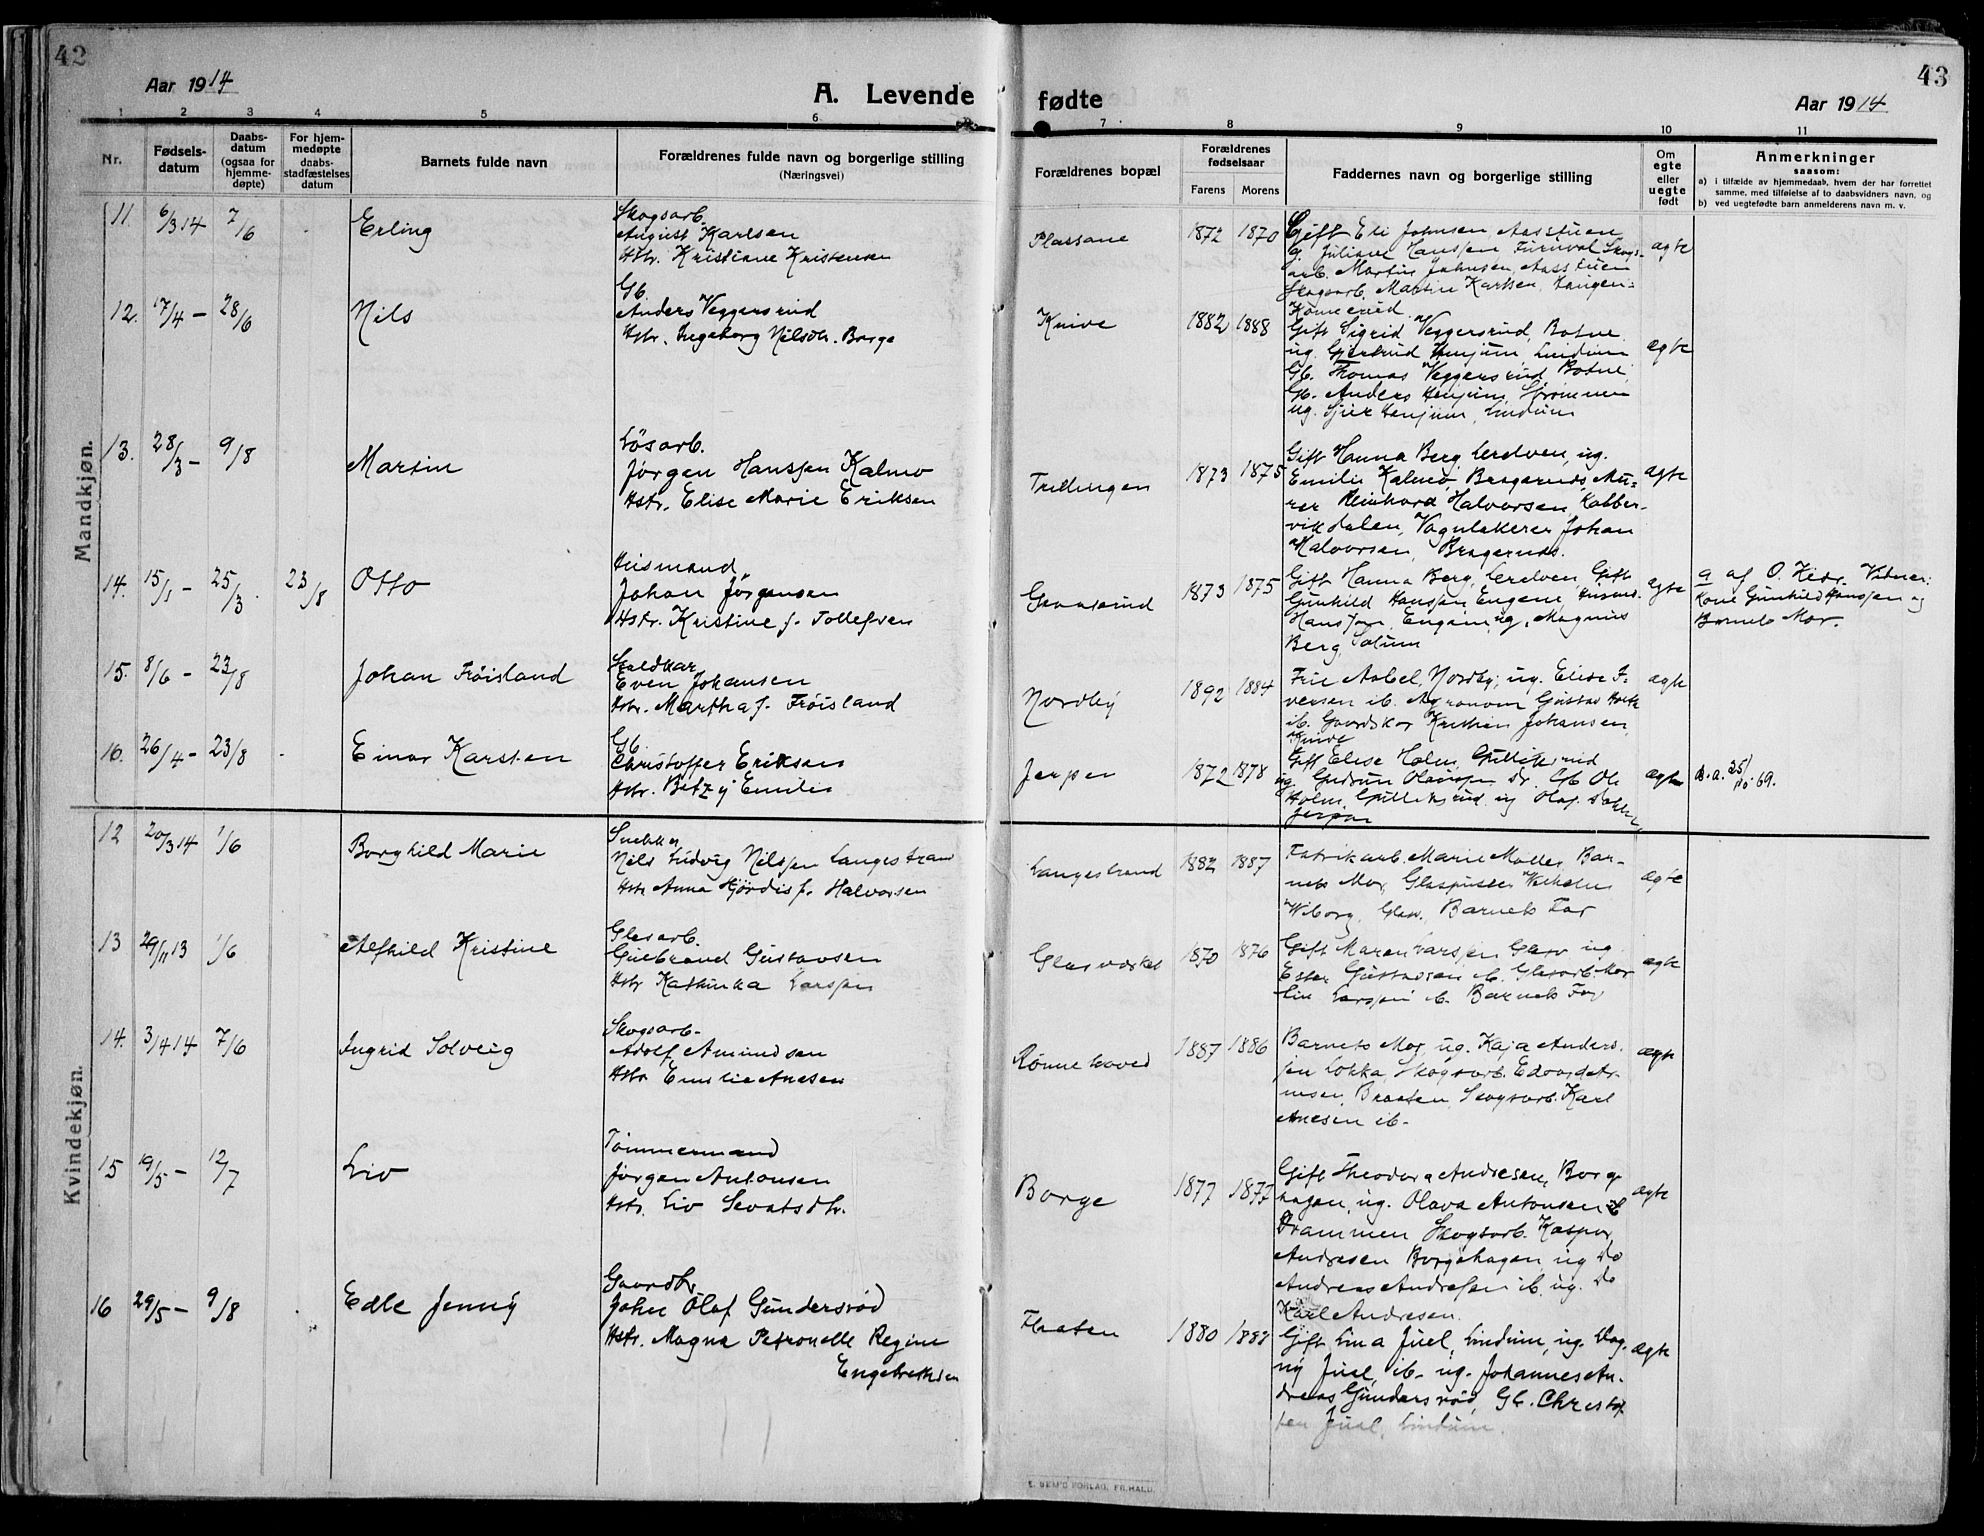 42
Aar 1914
A. Levende
1 2 3 4 5 6
Nr.
Fødsels-
datum
Daabs-
datum
(ogsaa for
hjemme-
døpte)
For hjem-
medøpte
daabs-
stadfæstelses
datum
Barnets fulde navn
Forældrenes fulde navn og borgerlige stilling
(Næringsvei)
fødte
43
Aar 1914
7 8 9 10 11
Forældrenes bopæl
Forældrenes
fødselsaar
Farens Morens
Faddernes navn og borgerlige stilling
Om
egte
eller
uegte
født
Anmerkninger
saasom:
a) i tilfælde av hjemmedaab, hvem der har forrettet
samme, med tilføielse af to daabsvidners navn, og
b) ved uegtefødte barn anmelderens navn m. v.
Mandkjøn.
11. 6/3 14 7/6 Erling
Skogsarb.
August Karlsen
Hstr. Kristiane Kristensen
Plassane 1872 1870
Gift Eli Johnsen Aasstuen
g. Juliane Hanssen Furuval Skogs-
arb. Martin Johnsen, Aasstuen
Skogsarb. Martin Karlsen, Langen-
Konnerud.
ægte
12. 17/4 - 28/6 Nils
Gb.
Anders Veggersrud
Hstr. Ingeborg Nilsdtr. Borge
Knive 1882 1888
Gift Sigrid Veggersrud, Botne
ug. Gjertrud Henjum, Lindum
Gb. Thomas Veggersrud Botne,
Gb. Anders Henjum, Strømmen
ug. Sjur Henjum, Lindum
ægte
13. 28/3 - 9/8 Martin
Løsarb.
Jørgen Hanssen Kalmo
Hstr. Elise Marie Eriksen
Tredlingen 1873 1875
Gift Hanna Berg, Leredven, ug.
Emilie Kalmo, Bragernes, Mu-
rer Reinhard Halvorsen, Kobber-
vikdalen, Vognlakerer Johan
Halvorsen, Bragernes.
ægte
14. 15/1 - 25/3. 23/8 Otto
Husmand
Johan Jørgensen
Hstr. Kristine f. Tollefsen
Gaaserud 1873 1875
Gift Hanna Berg, Leredven, Gift
Gunhild Hanssen, Engene, Husmd.
Hanssen, Engene, ug. Magnus
Berg, Solum
ægte
a af O. Hedr. Vidner:
Kone Gunhild Hanssen og
Barnets Mor.
15. 8/6 - 23/8 Johan Frøisland
Even Johansen
Hstr. Martha f. Frøisland
Nordby 1892 1884
Frue Aabel, Nordby; ug. Elise I-
versen ib. Agronom Gustav Holt
ib. Gaardskar Kristian Johansen,
Knive
ægte
16. 26/4 - 23/8 Einar Karsten
Gb.
Christoffer Eriksen
Hstr. Betzy Emilie
Jerpen 1872 1878
Gift Elise Holm, Gulliksrud
ug Gudrun Olsen Dr. Gb. Ole
Holm, Gulliksrud ug Olaf
Jerpen
ægte
d. a. 25/10 69.
Kvindekjøn.
12 20/3 14 1/6 Borghild Marie
Snekker
Nils Ludvig Nilssen Langestrand
Hstr Anna Hjørdis f. Halvorsen
Langestrand 1882 1887
Fabrikarb. Marie Møller Bar-
nets Mor, Glaspuster Wilhelm
Wiborg, Glasv. Barnets Far
ægte
13 29/11 13 1/6 Alfhild Kristine
Glasarb.
Gulbrand Gustavsen
Hstr Kathinka Larssen
Glasværket 1870 1876
Gift Maren Larssen Glasv ug
Ester Gustavsen ib. Glasarb. Mar
tin Larssen ib. Barnets Far
ægte
14. 3/4 14 7/6 Ingrid Solveig
Skogsarb.
Adolf Amundsen
Hstr Emilie Anesen
Rønnehoved 1887 1886
Barnets Mor, ug. Kaja Anders-
sen Løkka, Skogsarb. Edvard Ar-
nesen, Braaten, Skogsarb. Karl
Anesen ib.
ægte
15 19/5 - 12/7 Liv
Tømmermand
Jørgen Antonsen
Hstr. Liv Sevatsdtr.
Borge 1877 1877
Gift Theodora Andresen, Borge
hagen, ug. Olava Antonsen
Drammen, Skogsarb. Kaspar
Andresen Borgehagen, ug Do
Andreas Andresen ib. ug. Do
Karl Andresen.
ægte
16 29/5 - 9/8 Edle Jenny
Gaardbr.
John Olaf Gundersrød
Hstr. Magna Petronelle Regine
Engebretsen
Flaaten 1880 1883
Gift Lina Juel, Lindum, ug. Dag-
ny Juel, ib. ug. Johannes An-
dreas Gundersrød, Gb. Christof-
fer Juel, Lindum.
ægte
E. SEM'S FORLAG, FR.HALD.